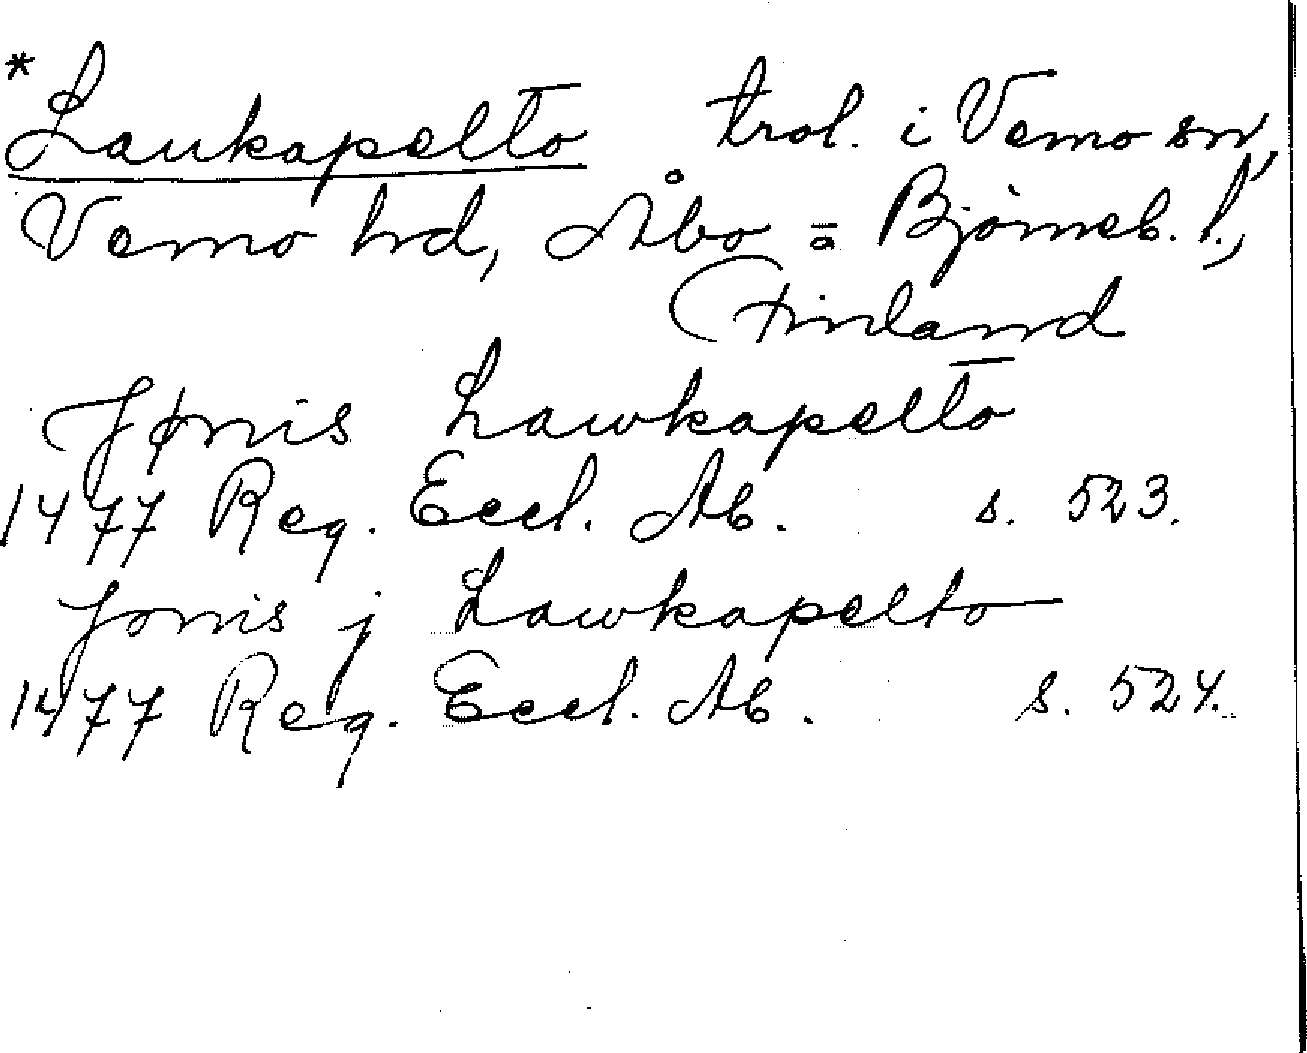 *Laukapelto trol. i Vemo sn,
Vemo hd, Åbo = Björneb. l.,
Finland
Jønis Lawkapelto
1477 Reg. Eccl. Ab. s. 523.
Jonis j Lawkapelto
1477 Reg. Eccl. Ab. s. 524.